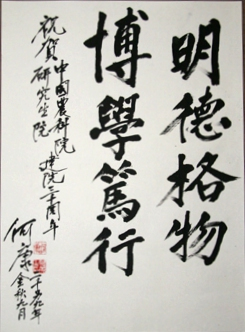 明德格物
博學篤行
祝賀中國農科院
研究生院建院三十周年
何康
二千〇九年
金秋九月